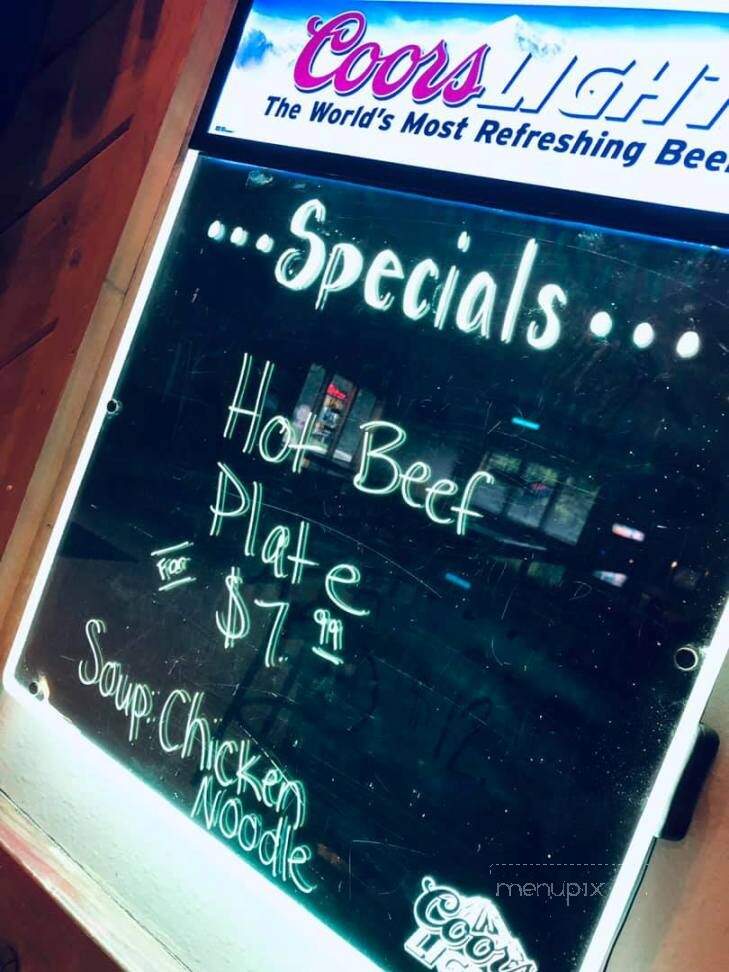 Coors LIGHT
The World's Most Refreshing Beer
...Specials...
Hot Beef
Plate
From
$7.99
Soup: Chicken
Noodle
menupix
Coors
LIG